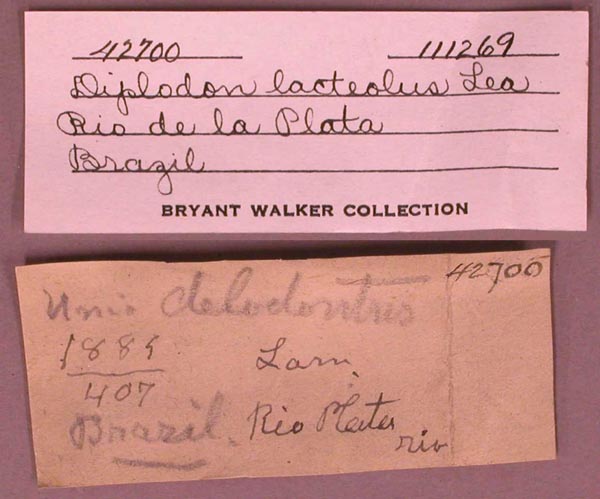 42700 111269
Diplodon lacteolus Lea
Rio de la Plata
Brazil
BRYANT WALKER COLLECTION
42700
Unio delodontris
1885
Lam.
407
Brazil. Rio Plata
riv